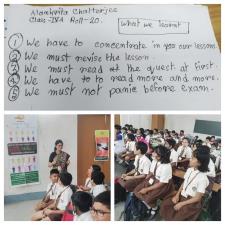 Alankrita Chatterjee
Class-IVA Roll-20.
What we learnt
① We have to concentrate in you our lessons.
② We must revise the lesson.
③ We must read at the quest at first.
④ We have to to read more and more.
⑤ We must not panic before exam.